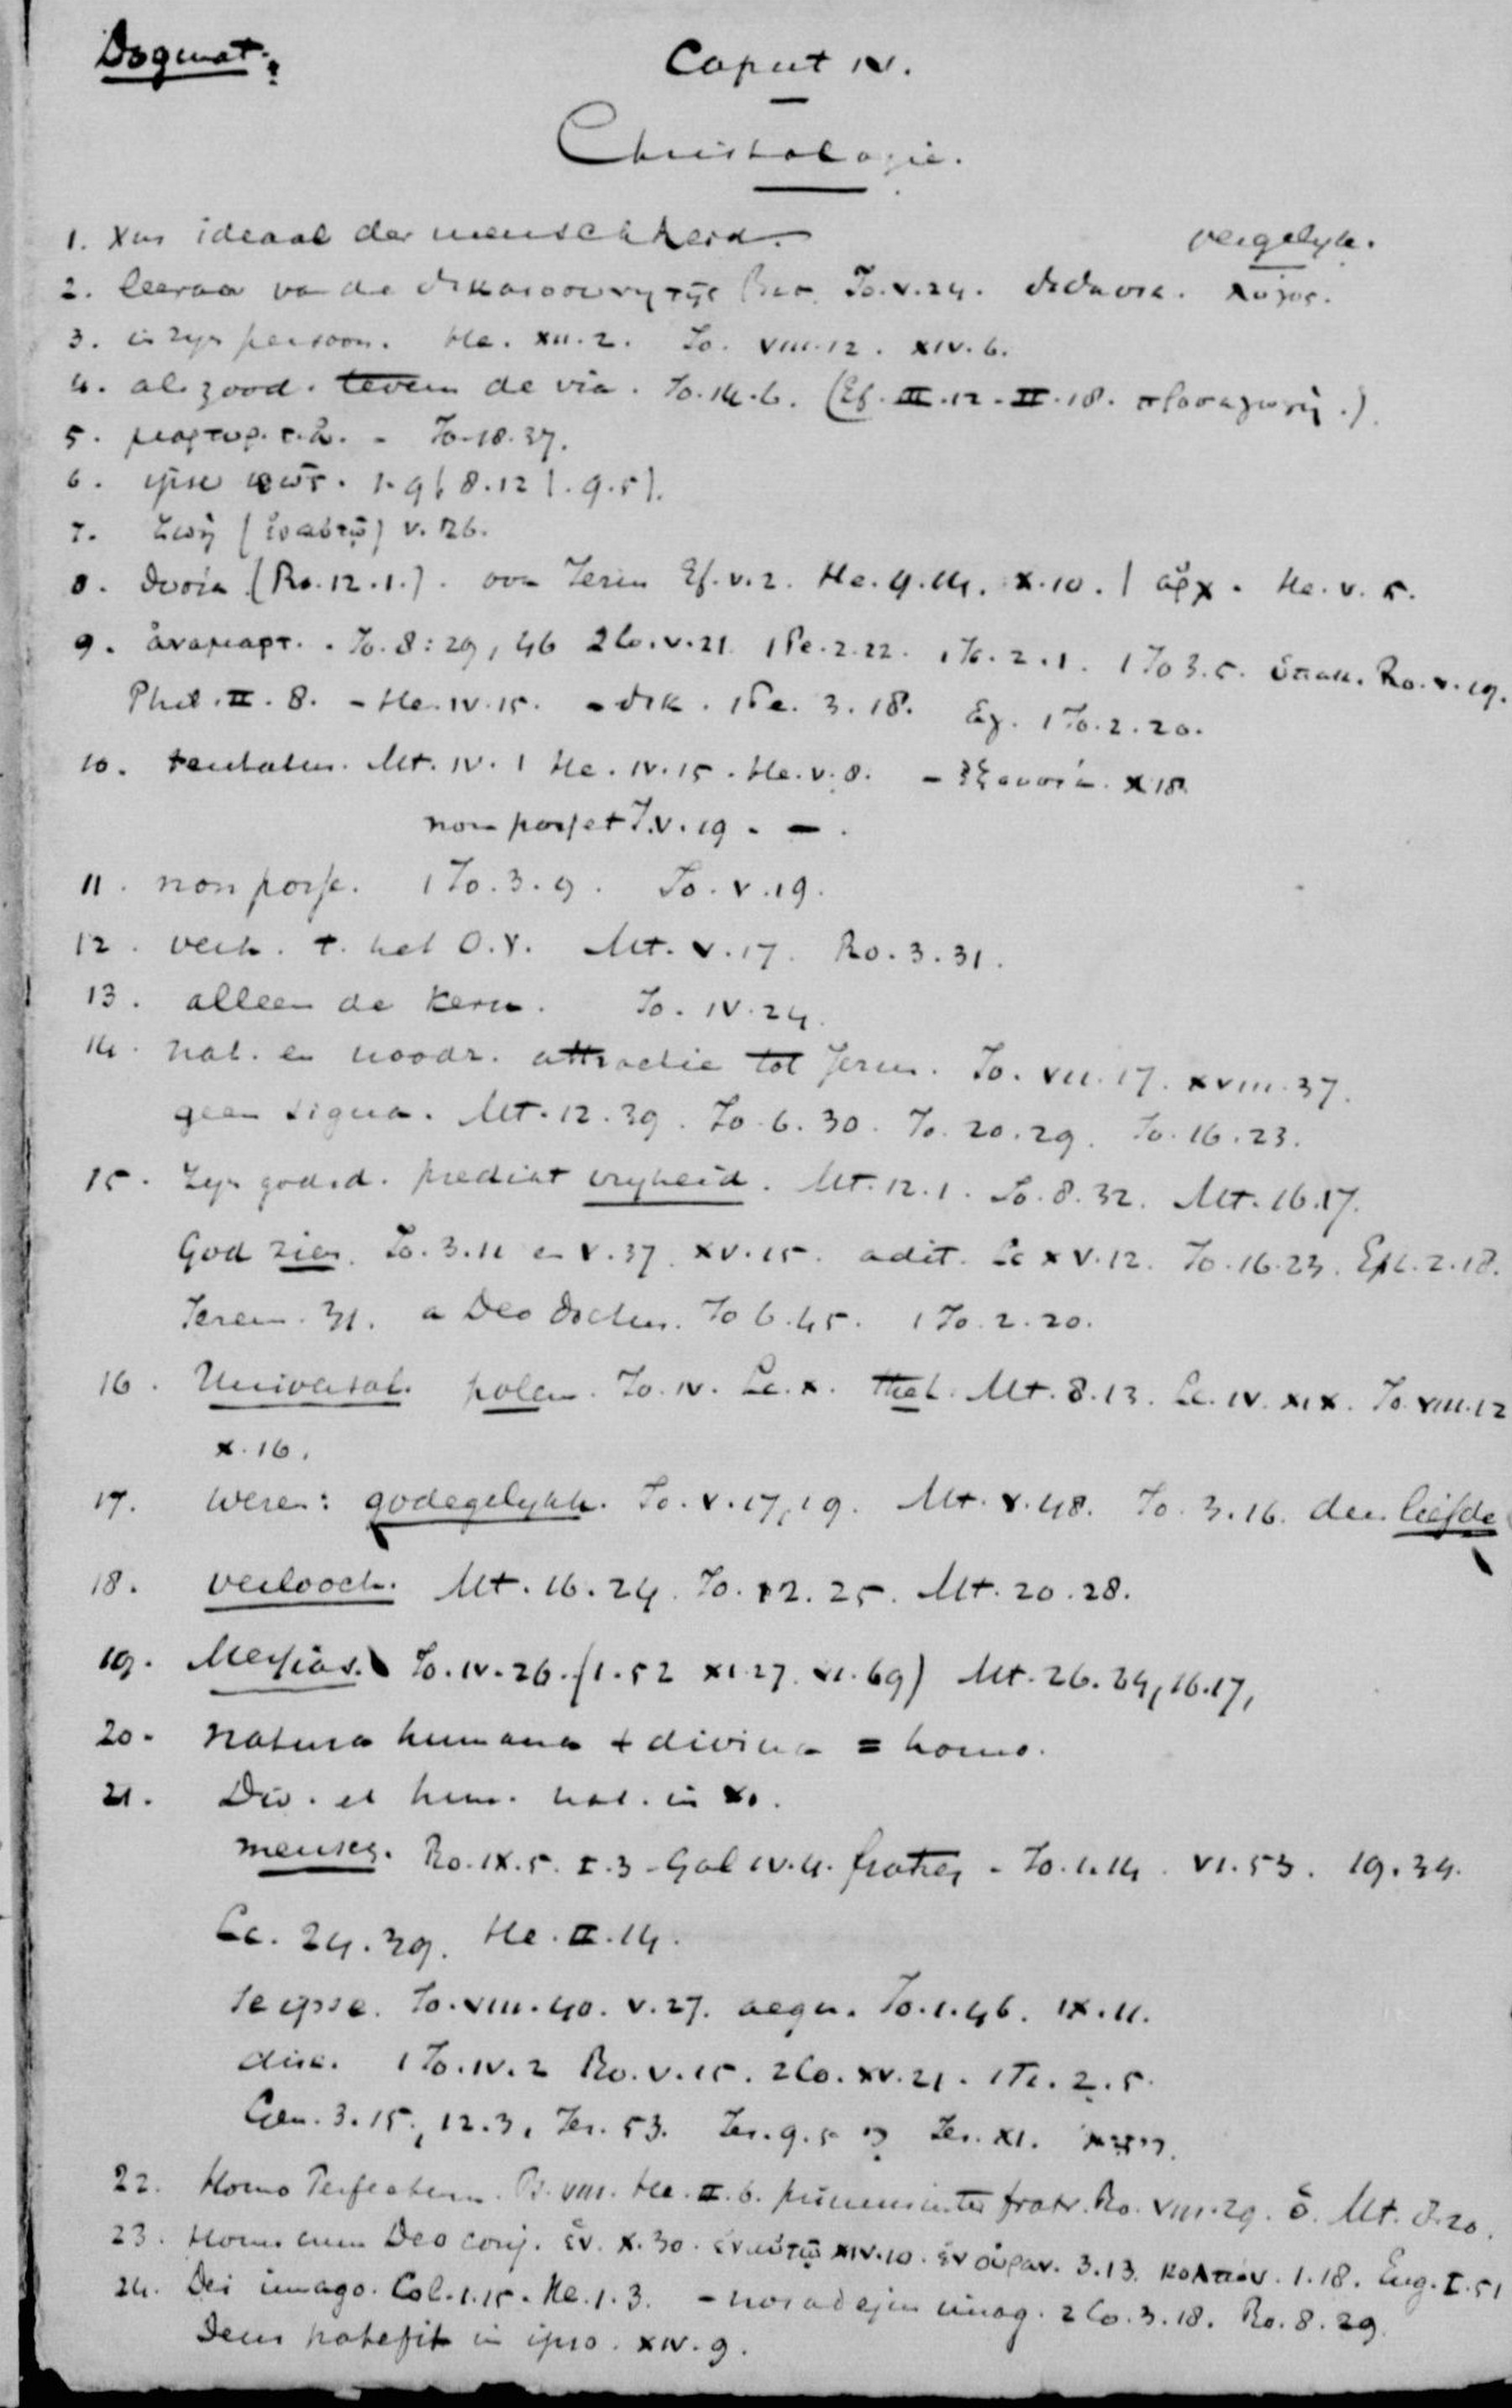 Dogmat.
Caput IV.
Christologie.
1. Xus ideaal der menschheid.
vergelijk.
2. leeraar van de δικαιοσύνη τῆς Jo. V. 24. λόγος.
3. in zijn persoon. He. XII. 2. Jo. VIII. 12. XIV. 6.
4. als zood. tevens de via. Jo. 14. 6. (Ef. III. 12 - II. 18. προσαγωγή.)
5. μαρτυρ. τ. ἀ. - Jo. 18. 37.
6. ipse φῶς. 1. 9 ( 8. 12 ). 9. 5).
7. ζωή (ἐν αὑτῷ) V. 26.
8. θυσία (Ro. 12. 1.). ook Jezus Ef. V. 2. He. 9. 14. X. 10. / ἀρχ. He. V. 5.
9. ἀναμαρτ. Jo. 8: 29, 46 2 Co. V. 21. 1 Pe. 2. 22. 1 Jo. 2. 1. 1 Jo 3. 5. ὑπακ. Ro. V. 19.
Phil. II. 8. - He. IV. 15. - δικ. 1 Pe. 3. 18. ἁγ. 1 Jo. 2. 20.
10. tentatus. Mt. IV. 1 He. IV. 15. He. V. 8. - ἐξουσία. X 18.
non posset J. V. 19. - .
11. non posse. 1 Jo. 3. 9. Jo. V. 19.
12. verh. t. het O. V. Mt. V. 17. Ro. 3. 31.
13. alleen de kern. Jo. IV. 24.
14. nat. en noodz. attractie tot Jezus. Jo. VII. 17. XVIII. 37.
geen signa. Mt. 12. 39. Jo. 6. 30. Jo. 20. 29. Jo. 16. 23.
15. Zijn godsd. predikt vrijheid. Mt. 12. 1. Jo. 8. 32. Mt. 16. 17.
God zien. Jo. 3. 11 en V. 37. XV. 15. adit. Lc XV. 12. Jo. 16. 23. Eph. 2. 18.
Jerem. 31. a Deo doctus. Jo 6. 45. 1 Jo. 2. 20.
16. Universal. polem. Jo. IV. Lc. X. thet. Mt. 8. 13. Lc. IV. XIX. Jo. VIII. 12
X. 16.
17. wezen: godegelijkh. Jo. V. 17, 19. Mt. V. 48. Jo. 3. 16. der liefde
18. verlooch. Mt. 16. 24. Jo. 12. 25. Mt. 20. 28.
19. Messias. Jo. IV. 26. (1. 52 XI. 27. VI. 69) Mt. 26. 64, 16. 17,
20. Natura humana + divina = homo.
21. Div. et hum. nat. in Xo.
mensch. Ro. IX. 5. I. 3 - Gal IV. 4. frater - Jo. 1. 14. VI. 53. 19. 34.
Lc. 24. 39. He. II. 14.
se ipse. Jo. VIII. 40. V. 27. aequ. Jo. 1. 46. IX. 11.
disc. 1 Jo. IV. 2 Ro. V. 15. 2 Co. XV. 21. 1 Ti. 2. 5.
Gen. 3. 15, 12. 3, Jes. 53. Jes. 9. 5 Jes. XI.
22. Homo Perfectus. Ps. VIII. He. II. 6. primus inter fratr. Ro. VIII. 29. ὁ. Mt. 8. 20.
23. Homo cum Deo conj. ἕν. X. 30. ἐν αὐτῷ XIV. 10. ἐν οὐραν. 3. 13. κολπον. 1. 18. I. 51
24. Dei imago. Col. 1. 15. He. 1. 3. - nos ad ejus imag. 2 Co. 3. 18. Ro. 8. 29.
Deus patefit in ipso. XIV. 9.